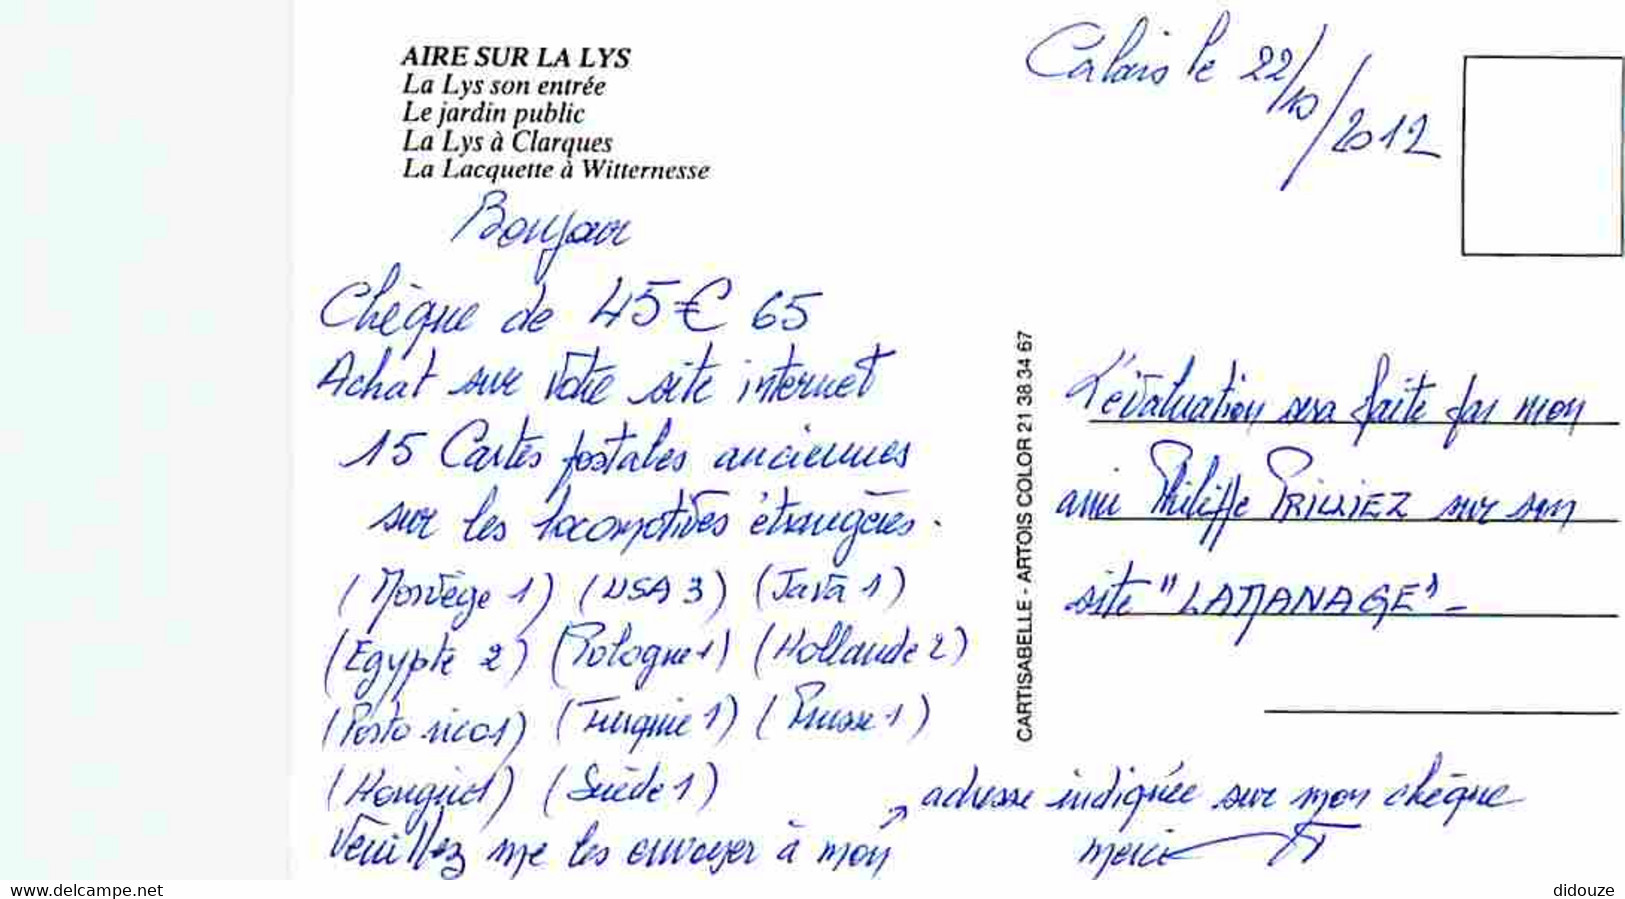 AIRE SUR LA LYS
La Lys son entrée
Le jardin public
La Lys à Clarques
La Lacquette à Witternesse
Calais le 22/10/2012
Bonjour
Chèque de 45€ 65
Achat sur votre site internet
15 Cartes postales anciennes
sur les locomotives étrangères.
(Norvège 1) (USA 3) (Java 1)
(Egypte 2) (Pologne 1) (Hollande 2)
(Porto rico 1) (Turquie 1) (Prusse 1)
(Hongrie 1) (Suède 1)
Veuillez me les envoyer à mon
adresse indiquée sur mon chèque
merci
CARTISABELLE - ARTOIS COLOR 21 38 34 67
L'évaluation sera faite par mon
ami Philippe PRILLIEZ sur son
site "LAMANAGE" -
www.delcampe.net
didouze